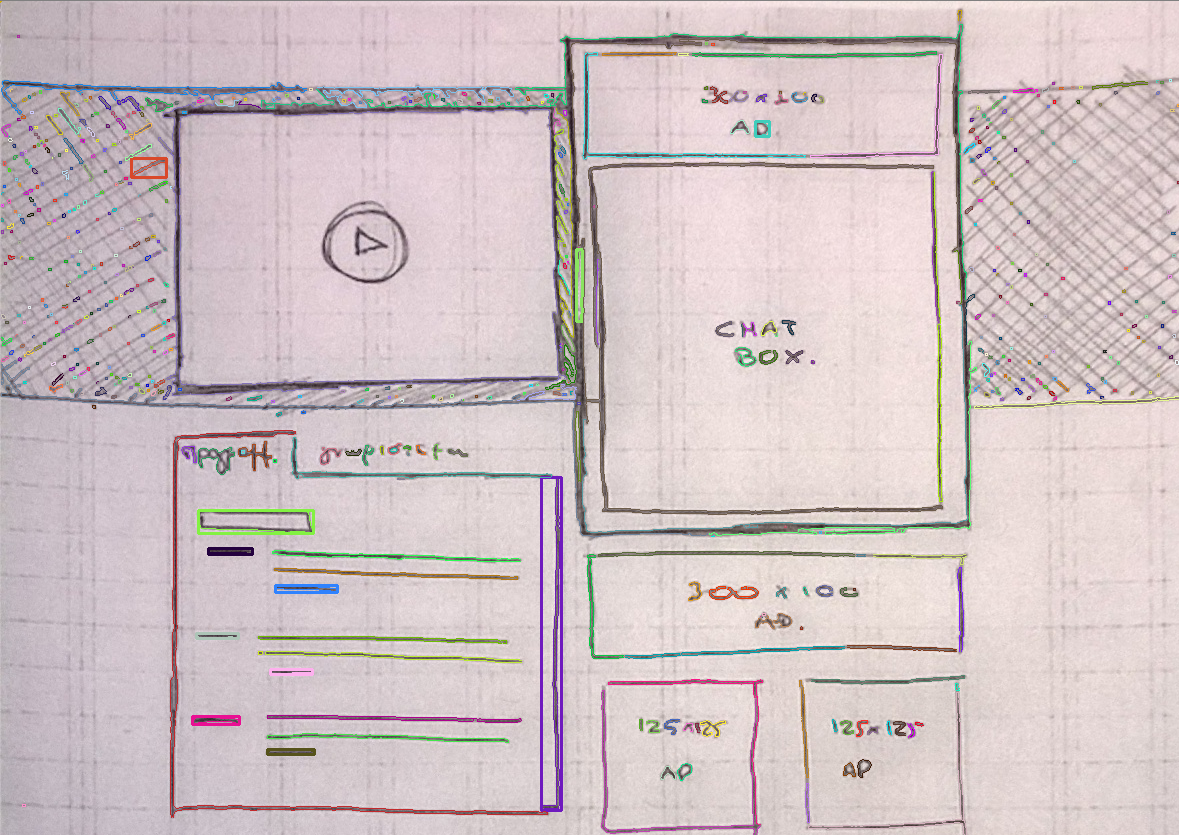 300 x 100
AD
CHAT
BOX.
300 x 100
AD.
125x125
AD
125x125
AD